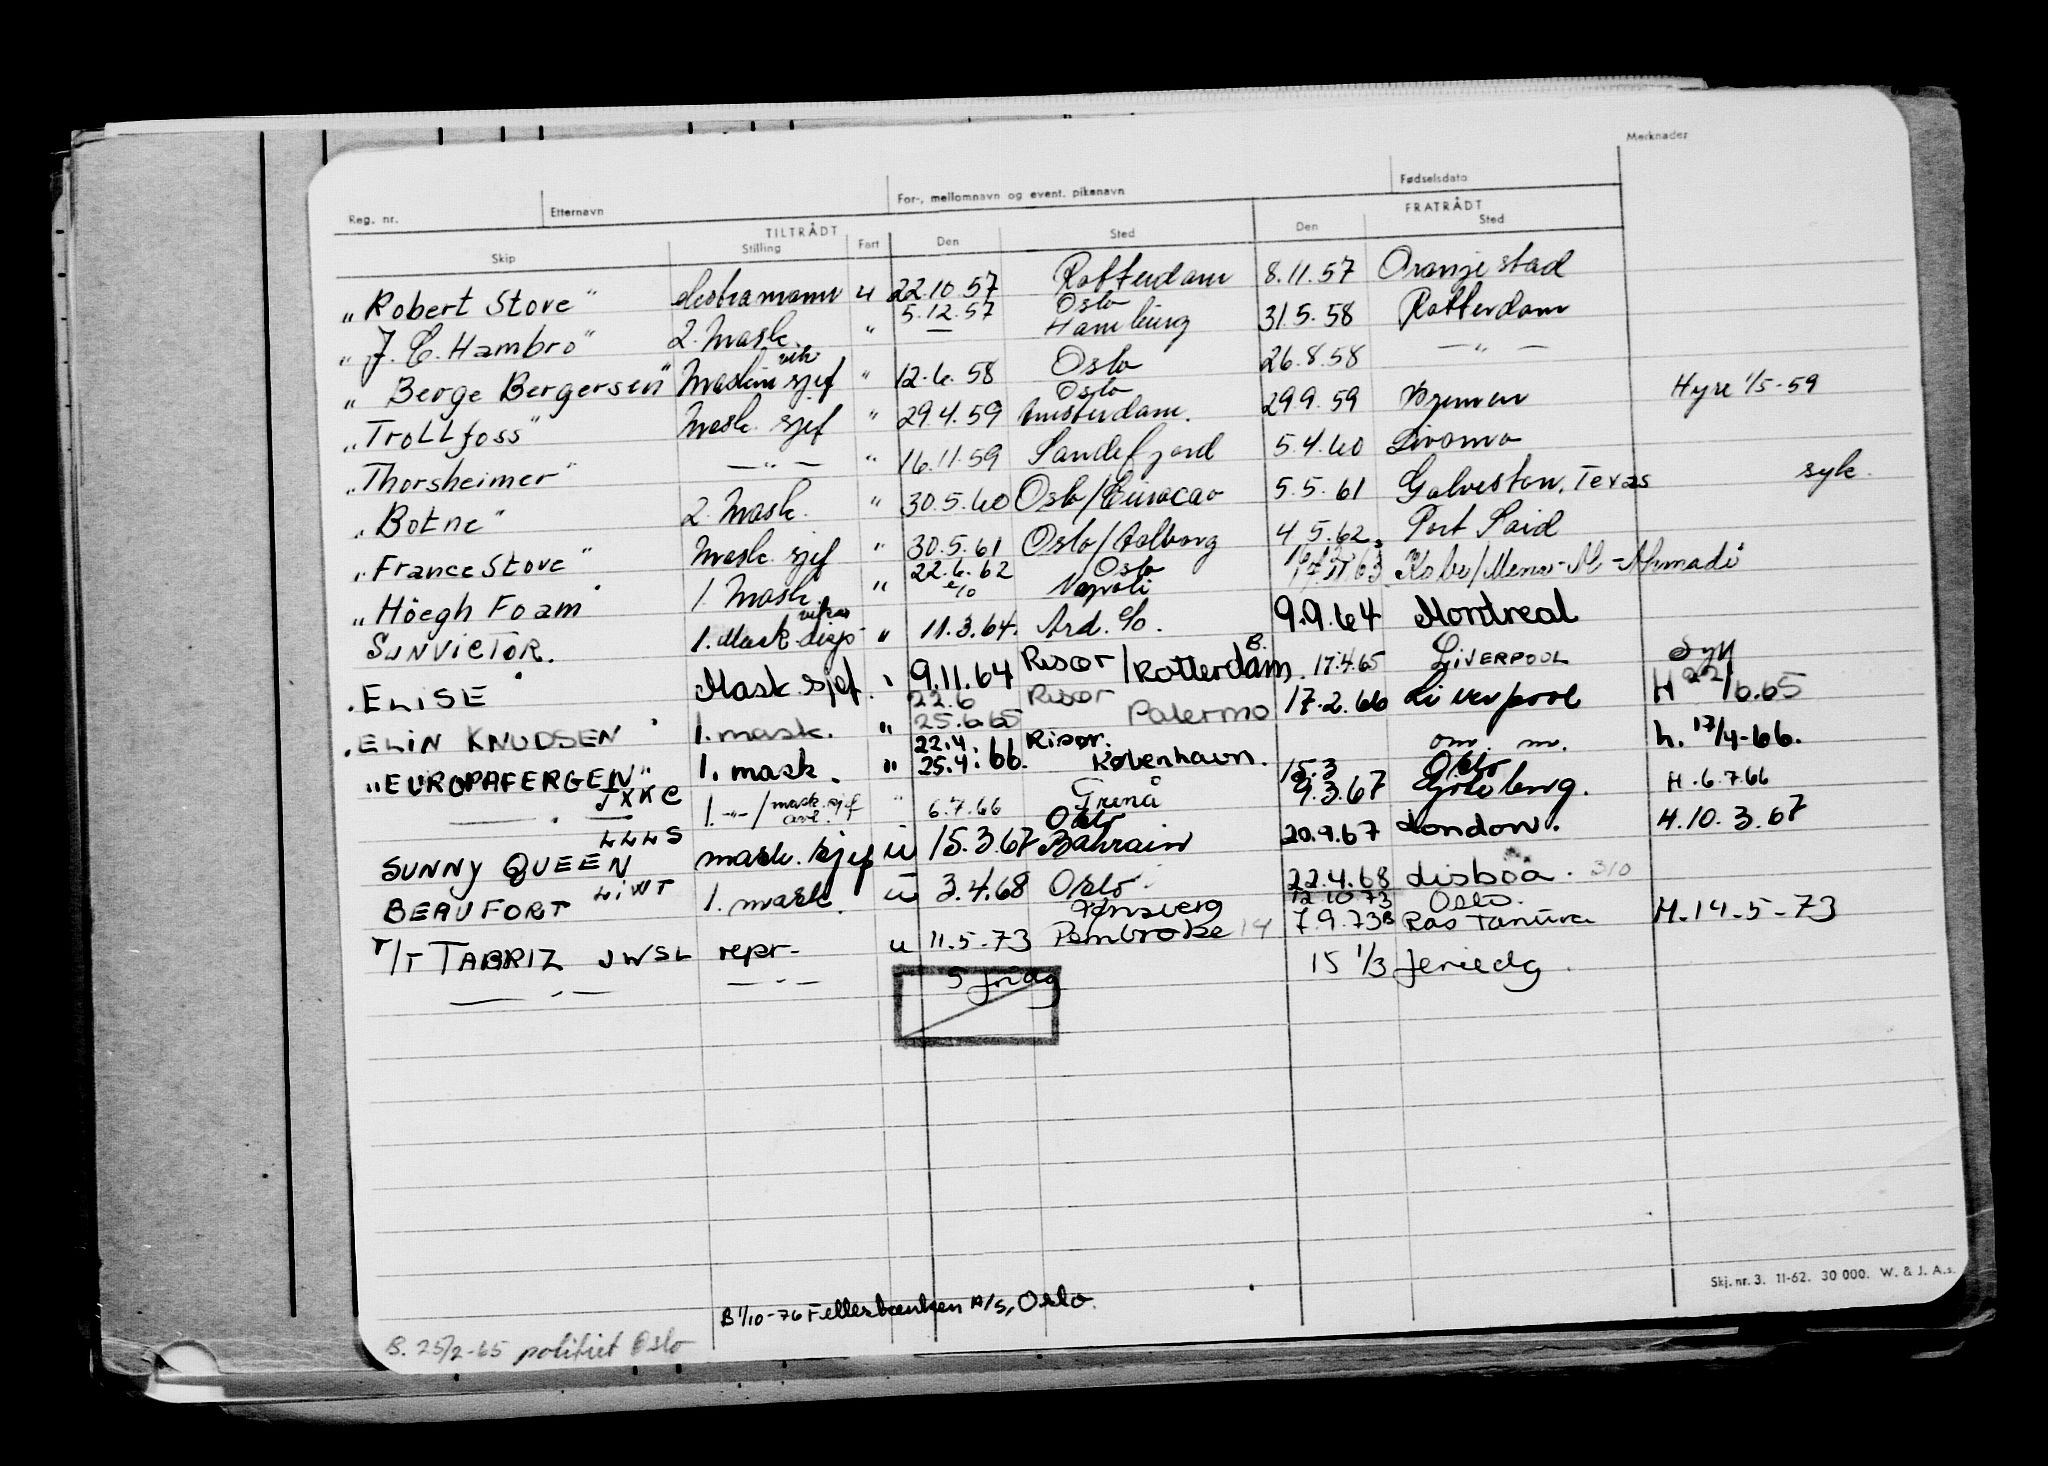 Merknader
Reg. nr. Etternavn For-, mellomnavn og event. pikenavn Fødselsdato
TILTRÅDT FRATRÅDT
Skip Stilling Fart Den Sted Den Sted
"Robert Stove" ekstramann u 22.10.57 Rotterdam 8.11.57 Oranjestad
"J. C. Hambro" 2. Mask. " 5.12.57 Oslo Hamburg 31.5.58 Rotterdam
"Berge Bergersen" Maskin sjef vik. " 12.6.58 Oslo 26.8.58 — " —
"Trollfoss" Mask. sjef " 29.4.59 Oslo Amsterdam. 29.9.59 Bremen Hyre 1/5-59
"Thorsheimer" — " — " 16.11.59 Sandefjord 5.4.60 Livorno
"Botne" 2. Mask. " 30.5.60 Oslo/Curacao 5.5.61 Galveston, Texas syk.
"France Stove" Mask. sjef " 30.5.61 Oslo/Aalborg 4.5.62 Port Said
"Höegh Foam" 1. Mask. " 22.6.62 Oslo Napoli Kobe/Mena-Al-Ahmadi
SUNVICTOR. 1. Mask disp " 11.3.64. Ard. 9.9.64 Montreal
"ELISE" Mask sjef. " 9.11.64 Risør/Rotterdam. B. 17.4.65 LIVERPOOL Syk
"ELIN KNUDSEN" 1. mask. " 22.6 25.6.65 Risør Palermo 17.2.66 Liverpool H 22/6.65
"EUROPAFERGEN" 1. mask. " 22.4. 25.4.66. Risør. København. om. m. h. 17/4-66.
— " — JXKC 1. -"-/mask. sjef avl. " 6.7.66 Grenå 15.3 9.3.67 Oslo Göteborg. H. 6.7.66
SUNNY QUEEN LLLS mask. sjef u 15.3.67 Oslo Bahrain 20.9.67 London. H. 10.3.67
BEAUFORT LIWT 1. mask. u 3.4.68 Oslo 22.4.68 Lisboa. 310
T/T TABRIZ JWSL repr- u 11.5-73 Tønsberg Pembroke 14 12.10.73 7.9.73B Oslo. Ras Tanura H. 14-5-73
— " — — " — 5 fridg 15 1/3 feriedg.
Skj. nr. 3. 11-62. 30 000. W. & J. A.s.
B 1/10-76 Fellesbanken A/S, Oslo.
B. 25/2-65 politiet Oslo